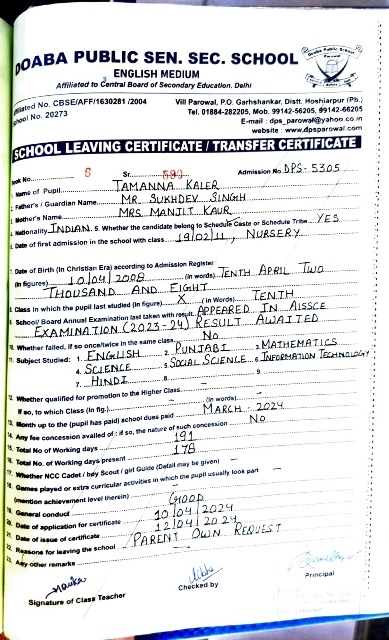 DOABA PUBLIC SEN. SEC. SCHOOL
ENGLISH MEDIUM
Affiliated to Central Board of Secondary Education, Delhi
Affiliated No. CBSE/AFF/1630281 /2004
School No. 20273
Vill Parowal, P.O. Garhshankar, Distt. Hoshiarpur (Pb.)
Tel. 01884-282205, Mob. 99142-56205, 99142-66205
E-mail : dps_parowal@yahoo.co.in
website : www.dpsparowal.com
SCHOOL LEAVING CERTIFICATE / TRANSFER CERTIFICATE
Book No. 6 Sr. 590 Admission No. DPS-5305
1. Name of Pupil. TAMANNA KALER
2. Father's / Guardian Name MR. SUKHDEV SINGH
3. Mother's Name MRS. MANJIT KAUR
4. Nationality INDIAN 5. Whether the candidate belong to Schedule Caste or Schedule Tribe YES
6. Date of first admission in the school with class 19/02/11, NURSERY
7. Date of Birth (In Christian Era) according to Admission Register
(In figures) 10/04/2008 (In words) TENTH APRIL TWO
THOUSAND AND EIGHT
8. Class in which the pupil last studied (in figure) X (In Words) TENTH
9. School/ Board Annual Examination last taken with result APPEARED IN AISSCE
EXAMINATION (2023-24) RESULT AWAITED
10. Whether failed, if so once/twice in the same class No
11. Subject Studied: 1. ENGLISH 2. PUNJABI 3. MATHEMATICS
4. SCIENCE 5. SOCIAL SCIENCE 6. INFORMATION TECHNOLOGY
7. HINDI 8. 9.
12. Whether qualified for promotion to the Higher Class –
If so, to which Class (In fig.) – (In words) –
13. Month up to the (pupil has paid) school dues paid MARCH-2024
14. Any fee concession availed of : if so, the nature of such concession No
15. Total No of Working days 191
16. Total No. of Working days present 178
17. Whether NCC Cadet / boy Scout / girl Guide (Detail may be given) –
18. Games played or extra curricular activities in which the pupil usually look part –
(mention achievement level therein) –
19. General conduct GOOD
20. Date of application for certificate 10/04/2024
21. Date of issue of certificate 12/04/2024
22. Reasons for leaving the school PARENT OWN REQUEST
23. Any other remarks –
Signature of Class Teacher
Checked by
Principal